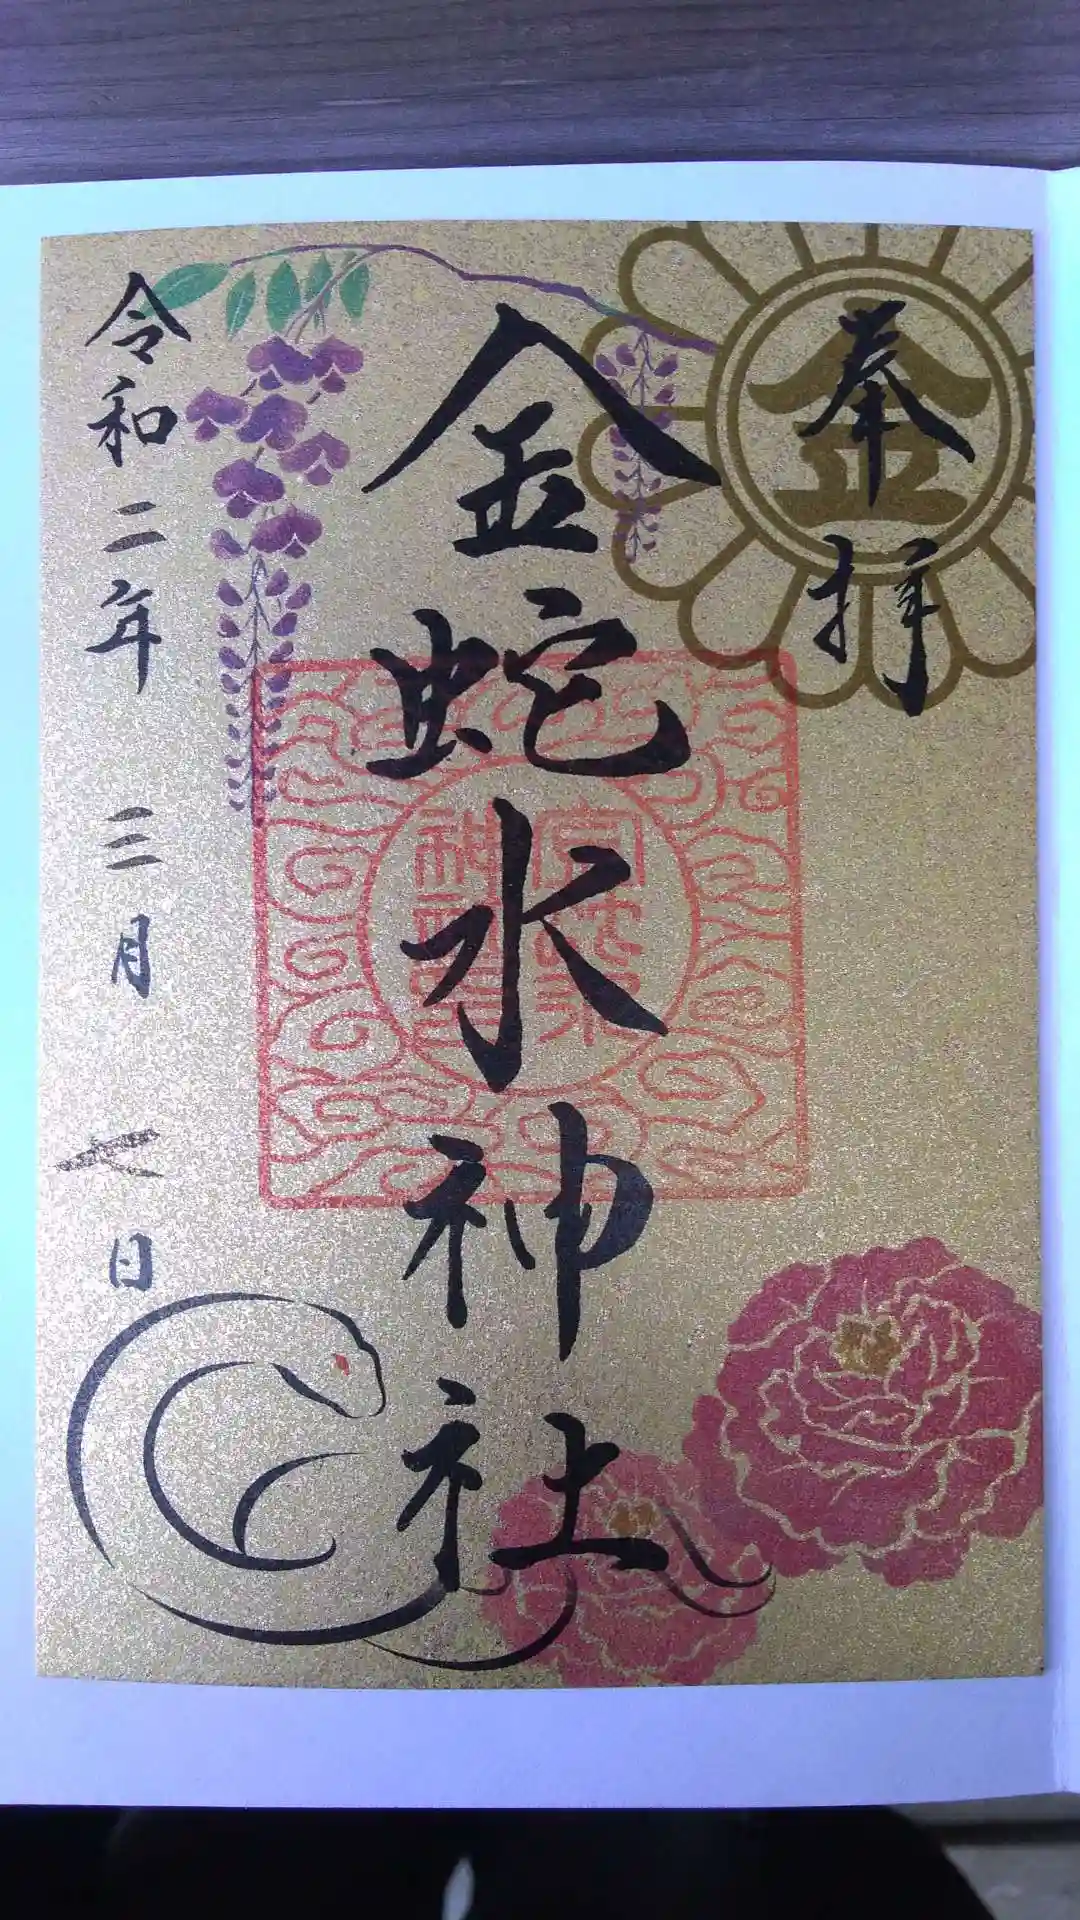 奉拝
金
金蛇水神社
令和二年三月七日